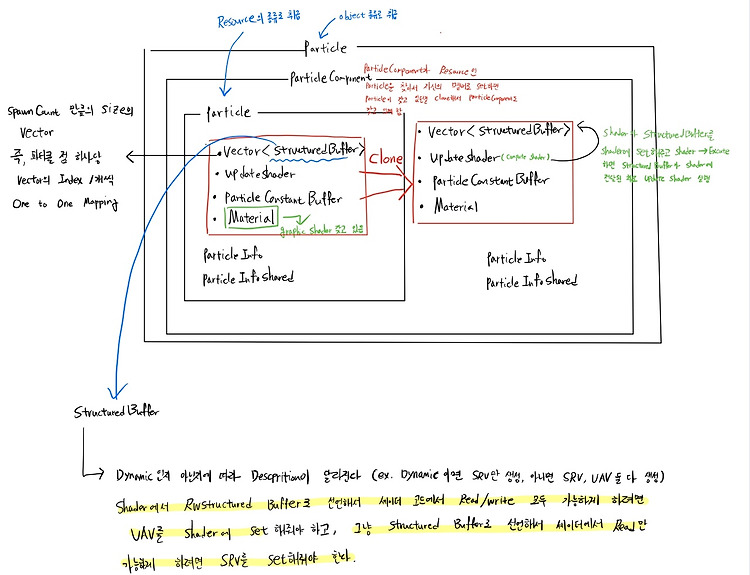 Resource의 종류로 취급
object 종류로 취급
Particle
ParticleComponent
ParticleComponent가 Resource인
Particle을 찾아서 자신의 멤버로 세팅하면
Particle이 갖고 있던걸 Clone해서 ParticleComponent로
갖고 있게 함
Particle
Spawn Count 만큼의 Size의
Vector
즉, 파티클 한 하나당
Vector의 Index 1개씩
One to One Mapping
• Vector<StructuredBuffer>
• updateshader
• ParticleConstantBuffer
• Material
graphic shader 갖고 있음
Particle Info
Particle Info Shared
Clone
• Vector<StructuredBuffer>
• updateshader (Compute Shader)
• ParticleConstantBuffer
• Material
Particle Info
Particle Info Shared
shader가 StructuredBuffer를
shader에 set 해주고 shader → Excute
하면 Structured Buffer가 shader에
전달된 채로 update shader 실행
StructuredBuffer
Dynamic 인지 아닌지에 따라 Descprition이 달라진다 (ex. Dynamic 이면 SRV만 생성, 아니면 SRV, UAV 둘 다 생성)
Shader에서 RWStructured Buffer로 선언해서 셰이더 코드에서 Read/write 모두 가능하게 하려면
UAV를 shader에 set 해줘야 하고, 그냥 Structured Buffer로 선언해서 셰이더에서 Read만
가능하게 하려면 SRV를 set해줘야 한다.